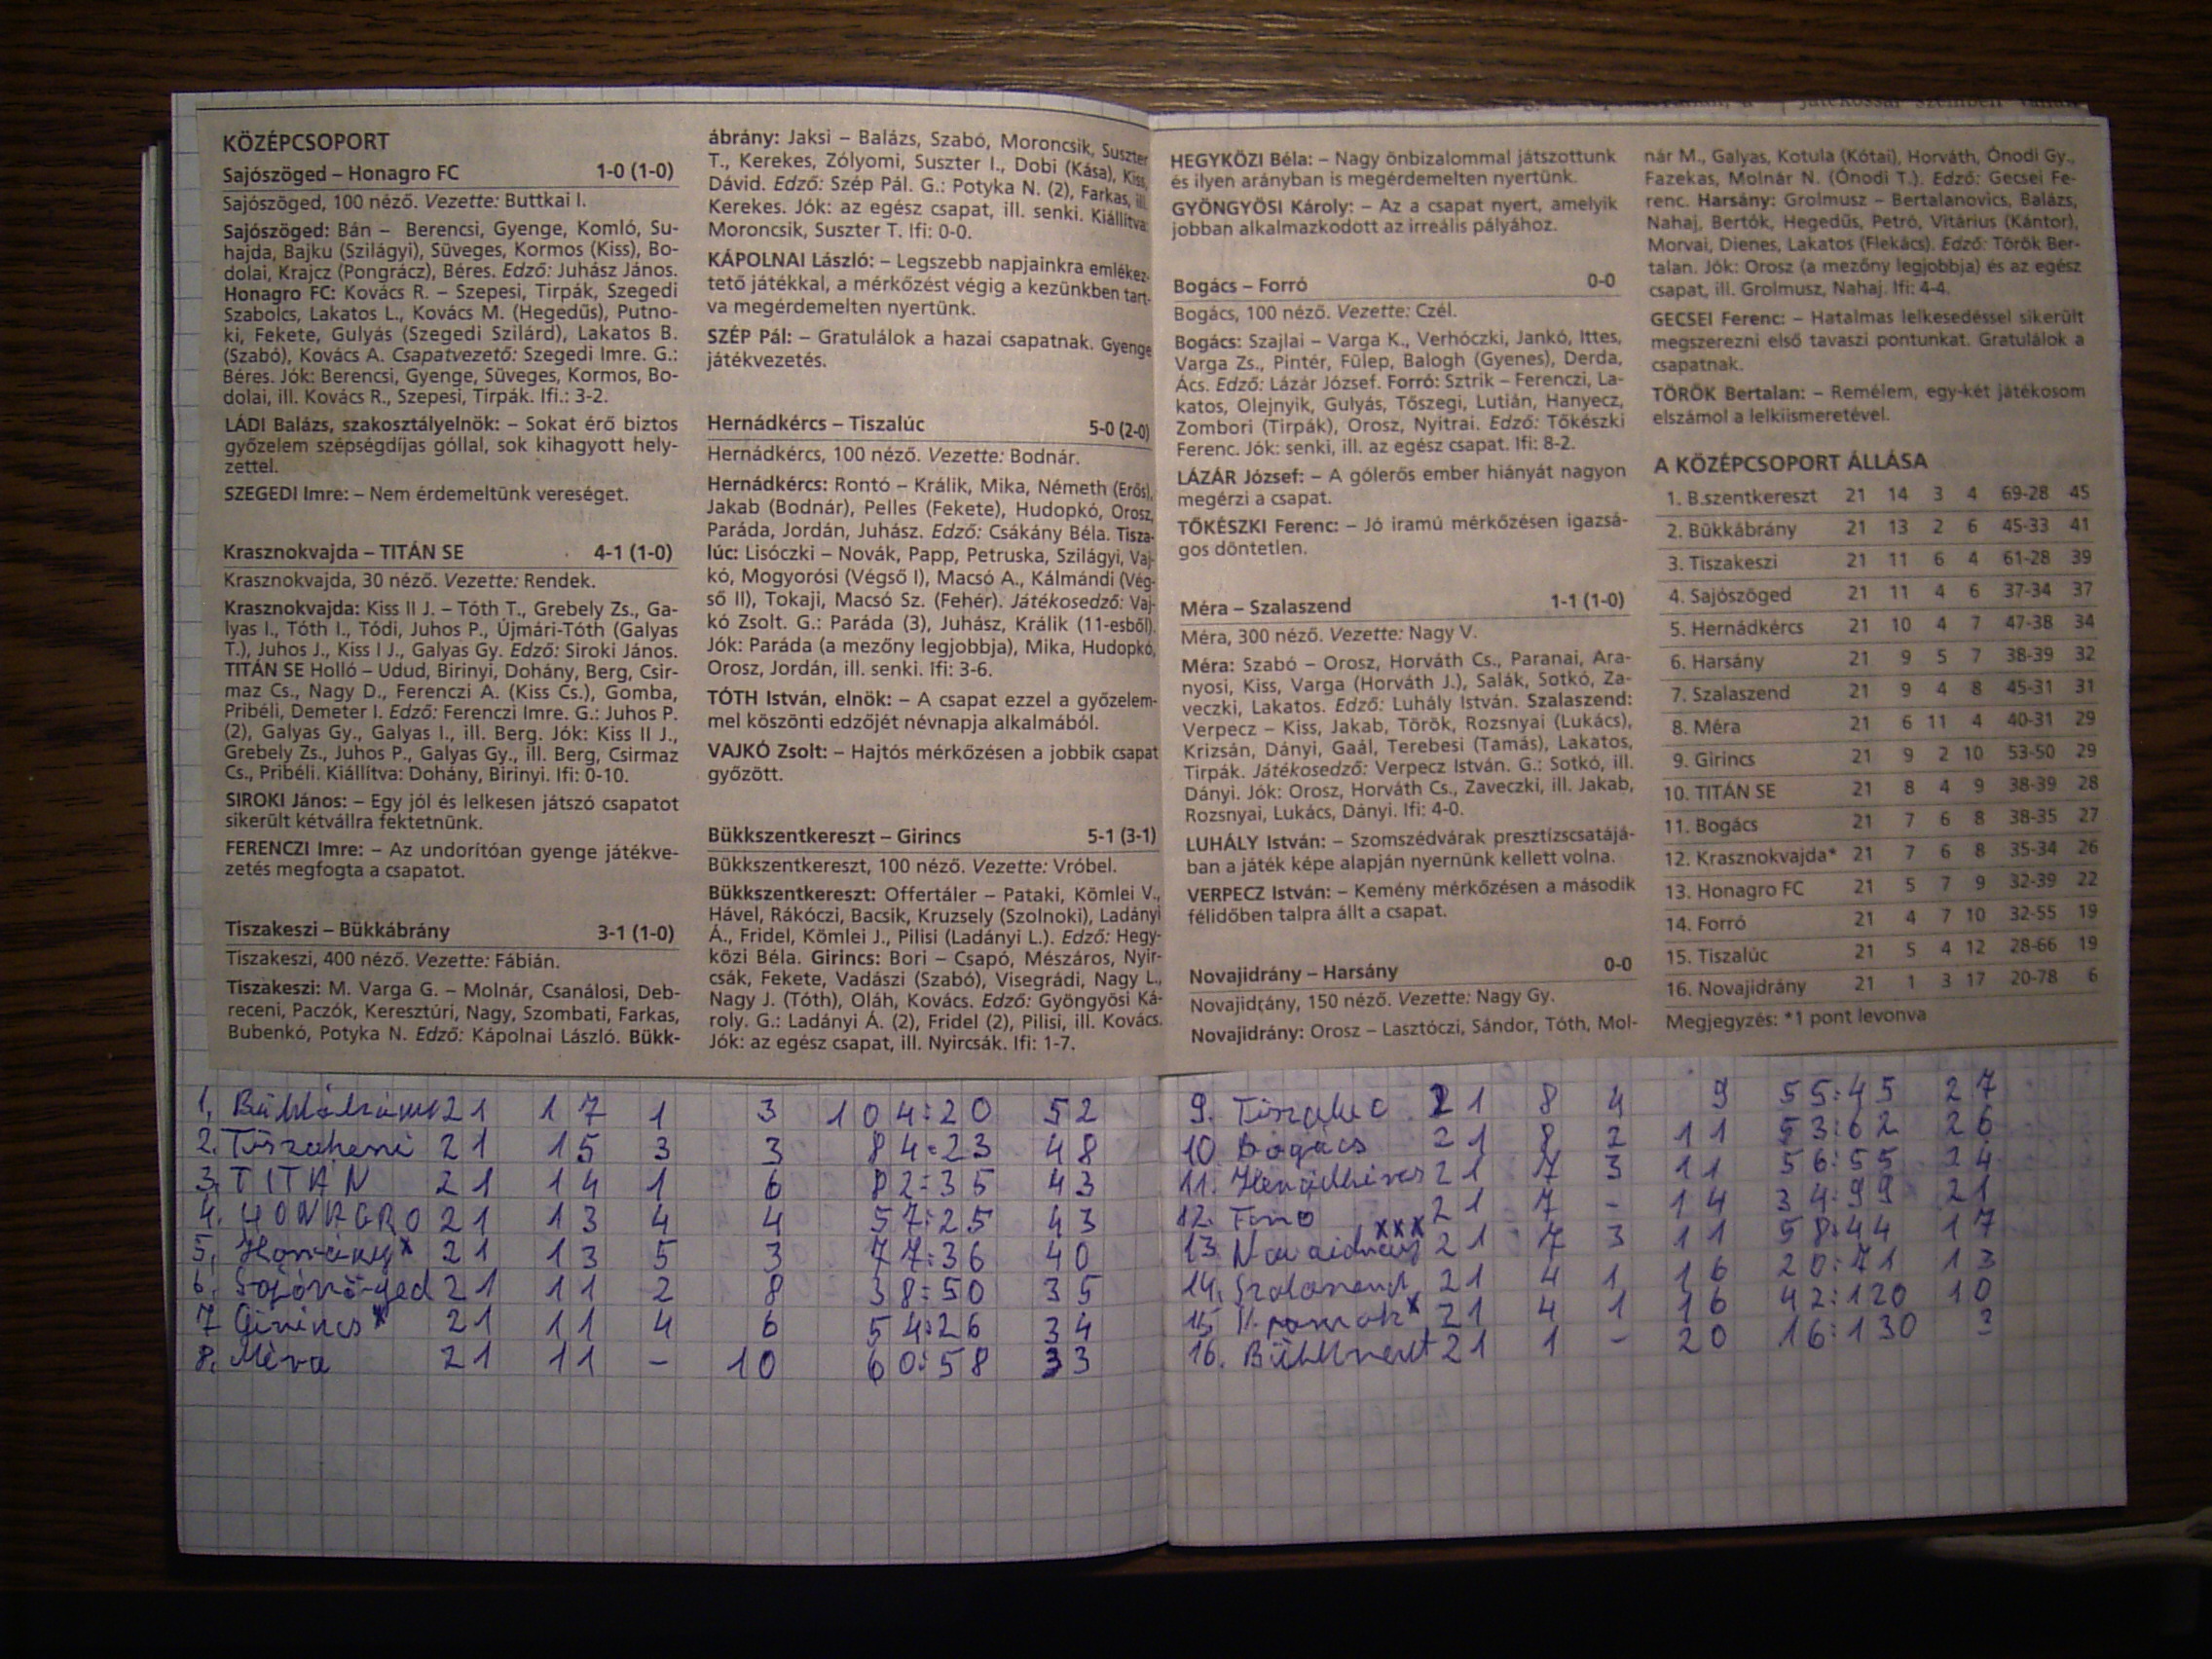 KÖZÉPCSOPORT
Sajószöged – Honagro FC 1-0 (1-0)
Sajószöged, 100 néző. Vezette: Buttkai I.
Sajószöged: Bán – Berencsi, Gyenge, Komló, Su-
hajda, Bajku (Szilágyi), Süveges, Kormos (Kiss), Bo-
dolai, Krajcz (Pongrácz), Béres. Edző: Juhász János.
Honagro FC: Kovács R. – Szepesi, Tirpák, Szegedi
Szabolcs, Lakatos L., Kovács M. (Hegedűs), Putno-
ki, Fekete, Gulyás (Szegedi Szilárd), Lakatos B.
(Szabó), Kovács A. Csapatvezető: Szegedi Imre. G.:
Béres. Jók: Berencsi, Gyenge, Süveges, Kormos, Bo-
dolai, ill. Kovács R., Szepesi, Tirpák. Ifi.: 3-2.
LÁDI Balázs, szakosztályelnök: – Sokat érő biztos
győzelem szépségdíjas góllal, sok kihagyott hely-
zettel.
SZEGEDI Imre: – Nem érdemeltünk vereséget.
Krasznokvajda – TITÁN SE 4-1 (1-0)
Krasznokvajda, 30 néző. Vezette: Rendek.
Krasznokvajda: Kiss II J. – Tóth T., Grebely Zs., Ga-
lyas I., Tóth I., Tódi, Juhos P., Újmári-Tóth (Galyas
T.), Juhos J., Kiss I J., Galyas Gy. Edző: Siroki János.
TITÁN SE Holló – Udud, Birinyi, Dohány, Berg, Csir-
maz Cs., Nagy D., Ferenczi A. (Kiss Cs.), Gomba,
Pribéli, Demeter I. Edző: Ferenczi Imre. G.: Juhos P.
(2), Galyas Gy., Galyas I., ill. Berg. Jók: Kiss II J.,
Grebely Zs., Juhos P., Galyas Gy., ill. Berg, Csirmaz
Cs., Pribéli. Kiállítva: Dohány, Birinyi. Ifi: 0-10.
SIROKI János: – Egy jól és lelkesen játszó csapatot
sikerült kétvállra fektetnünk.
FERENCZI Imre: – Az undorítóan gyenge játékve-
zetés megfogta a csapatot.
Tiszakeszi – Bükkábrány 3-1 (1-0)
Tiszakeszi, 400 néző. Vezette: Fábián.
Tiszakeszi: M. Varga G. – Molnár, Csanálosi, Deb-
receni, Paczók, Keresztúri, Nagy, Szombati, Farkas,
Bubenkó, Potyka N. Edző: Kápolnai László. Bükk-
ábrány: Jaksi – Balázs, Szabó, Moroncsik, Suszter
T., Kerekes, Zólyomi, Suszter I., Dobi (Kása), Kiss,
Dávid. Edző: Szép Pál. G.: Potyka N. (2), Farkas, ill.
Kerekes. Jók: az egész csapat, ill. senki. Kiállítva:
Moroncsik, Suszter T. Ifi: 0-0.
KÁPOLNAI László: – Legszebb napjainkra emlékez-
tető játékkal, a mérkőzést végig a kezünkben tart-
va megérdemelten nyertünk.
SZÉP Pál: – Gratulálok a hazai csapatnak. Gyenge
játékvezetés.
Hernádkércs – Tiszalúc 5-0 (2-0)
Hernádkércs, 100 néző. Vezette: Bodnár.
Hernádkércs: Rontó – Králik, Mika, Németh (Erős),
Jakab (Bodnár), Pelles (Fekete), Hudopkó, Orosz,
Paráda, Jordán, Juhász. Edző: Csákány Béla. Tisza-
lúc: Lisóczki – Novák, Papp, Petruska, Szilágyi, Vaj-
kó, Mogyorósi (Végső I), Macsó A., Kálmándi (Vég-
ső II), Tokaji, Macsó Sz. (Fehér). Játékosedző: Vaj-
kó Zsolt. G.: Paráda (3), Juhász, Králik (11-esből).
Jók: Paráda (a mezőny legjobbja), Mika, Hudopkó,
Orosz, Jordán, ill. senki. Ifi: 3-6.
TÓTH István, elnök: – A csapat ezzel a győzelem-
mel köszönti edzőjét névnapja alkalmából.
VAJKÓ Zsolt: – Hajtós mérkőzésen a jobbik csapat
győzött.
Bükkszentkereszt – Girincs 5-1 (3-1)
Bükkszentkereszt, 100 néző. Vezette: Vróbel.
Bükkszentkereszt: Offertáler – Pataki, Kömlei V.,
Hável, Rákóczi, Bacsik, Kruzsely (Szolnoki), Ladányi
Á., Fridel, Kömlei J., Pilisi (Ladányi L.). Edző: Hegy-
közi Béla. Girincs: Bori – Csapó, Mészáros, Nyir-
csák, Fekete, Vadászi (Szabó), Visegrádi, Nagy L.,
Nagy J. (Tóth), Oláh, Kovács. Edző: Gyöngyösi Ká-
roly. G.: Ladányi Á. (2), Fridel (2), Pilisi, ill. Kovács.
Jók: az egész csapat, ill. Nyircsák. Ifi: 1-7.
HEGYKÖZI Béla: – Nagy önbizalommal játszottunk
és ilyen arányban is megérdemelten nyertünk.
GYÖNGYÖSI Károly: – Az a csapat nyert, amelyik
jobban alkalmazkodott az irreális pályához.
Bogács – Forró 0-0
Bogács, 100 néző. Vezette: Czél.
Bogács: Szajlai – Varga K., Verhóczki, Jankó, Ittes,
Varga Zs., Pintér, Fülep, Balogh (Gyenes), Derda,
Ács. Edző: Lázár József. Forró: Sztrik – Ferenczi, La-
katos, Olejnyik, Gulyás, Tőszegi, Lutián, Hanyecz,
Zombori (Tirpák), Orosz, Nyitrai. Edző: Tőkészki
Ferenc. Jók: senki, ill. az egész csapat. Ifi: 8-2.
LÁZÁR József: – A gólerős ember hiányát nagyon
megérzi a csapat.
TŐKÉSZKI Ferenc: – Jó iramú mérkőzésen igazsá-
gos döntetlen.
Méra – Szalaszend 1-1 (1-0)
Méra, 300 néző. Vezette: Nagy V.
Méra: Szabó – Orosz, Horváth Cs., Paranai, Ara-
nyosi, Kiss, Varga (Horváth J.), Salák, Sotkó, Za-
veczki, Lakatos. Edző: Luhály István. Szalaszend:
Verpecz – Kiss, Jakab, Török, Rozsnyai (Lukács),
Krizsán, Dányi, Gaál, Terebesi (Tamás), Lakatos,
Tirpák. Játékosedző: Verpecz István. G.: Sotkó, ill.
Dányi. Jók: Orosz, Horváth Cs., Zaveczki, ill. Jakab,
Rozsnyai, Lukács, Dányi. Ifi: 4-0.
LUHÁLY István: – Szomszédvárak presztízscsatájá-
ban a játék képe alapján nyernünk kellett volna.
VERPECZ István: – Kemény mérkőzésen a második
félidőben talpra állt a csapat.
Novajidrány – Harsány 0-0
Novajidrány, 150 néző. Vezette: Nagy Gy.
Novajidrány: Orosz – Lasztóczi, Sándor, Tóth, Mol-
nár M., Galyas, Kotula (Kótai), Horváth, Ónodi Gy.,
Fazekas, Molnár N. (Ónodi T.). Edző: Gecsei Fe-
renc. Harsány: Grolmusz – Bertalanovics, Balázs,
Nahaj, Bertók, Hegedűs, Petró, Vitárius (Kántor),
Morvai, Dienes, Lakatos (Flekács). Edző: Török Ber-
talan. Jók: Orosz (a mezőny legjobbja) és az egész
csapat, ill. Grolmusz, Nahaj. Ifi: 4-4.
GECSEI Ferenc: – Hatalmas lelkesedéssel sikerült
megszerezni első tavaszi pontunkat. Gratulálok a
csapatnak.
TÖRÖK Bertalan: – Remélem, egy-két játékosom
elszámol a lelkiismeretével.
A KÖZÉPCSOPORT ÁLLÁSA
1. B.szentkereszt 21 14 3 4 69-28 45
2. Bükkábrány 21 13 2 6 45-33 41
3. Tiszakeszi 21 11 6 4 61-28 39
4. Sajószöged 21 11 4 6 37-34 37
5. Hernádkércs 21 10 4 7 47-38 34
6. Harsány 21 9 5 7 38-39 32
7. Szalaszend 21 9 4 8 45-31 31
8. Méra 21 6 11 4 40-31 29
9. Girincs 21 9 2 10 53-50 29
10. TITÁN SE 21 8 4 9 38-39 28
11. Bogács 21 7 6 8 38-35 27
12. Krasznokvajda* 21 7 6 8 35-34 26
13. Honagro FC 21 5 7 9 32-39 22
14. Forró 21 4 7 10 32-55 19
15. Tiszalúc 21 5 4 12 28-66 19
16. Novajidrány 21 1 3 17 20-78 6
Megjegyzés: *1 pont levonva
1. Bükkábrány 21 17 1 3 104:20 52
2. Tiszakeszi 21 15 3 3 84:23 48
3. TITÁN 21 14 1 6 82:35 43
4. HONAGRO 21 13 4 4 57:25 43
5. Harsány x 21 13 5 3 77:36 40
6. Sajószöged 21 11 2 8 38:50 35
7 Girincs x 21 11 4 6 54:26 34
8. Méra 21 11 – 10 60:58 33
9. Tiszaluc 21 8 4 9 55:45 27
10. Bogács 21 8 2 11 53:62 26
11. Hernádkércs 21 7 3 11 56:55 24
12. Forró 21 7 – 14 34:99 21
13. Novaidrány xxx 21 7 3 11 58:44 17
14. Szalaszend 21 4 1 16 20:71 13
15. 21 4 1 16 42:120 10
16. 21 1 – 20 16:130 3